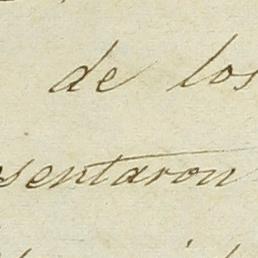 de los
sentaron